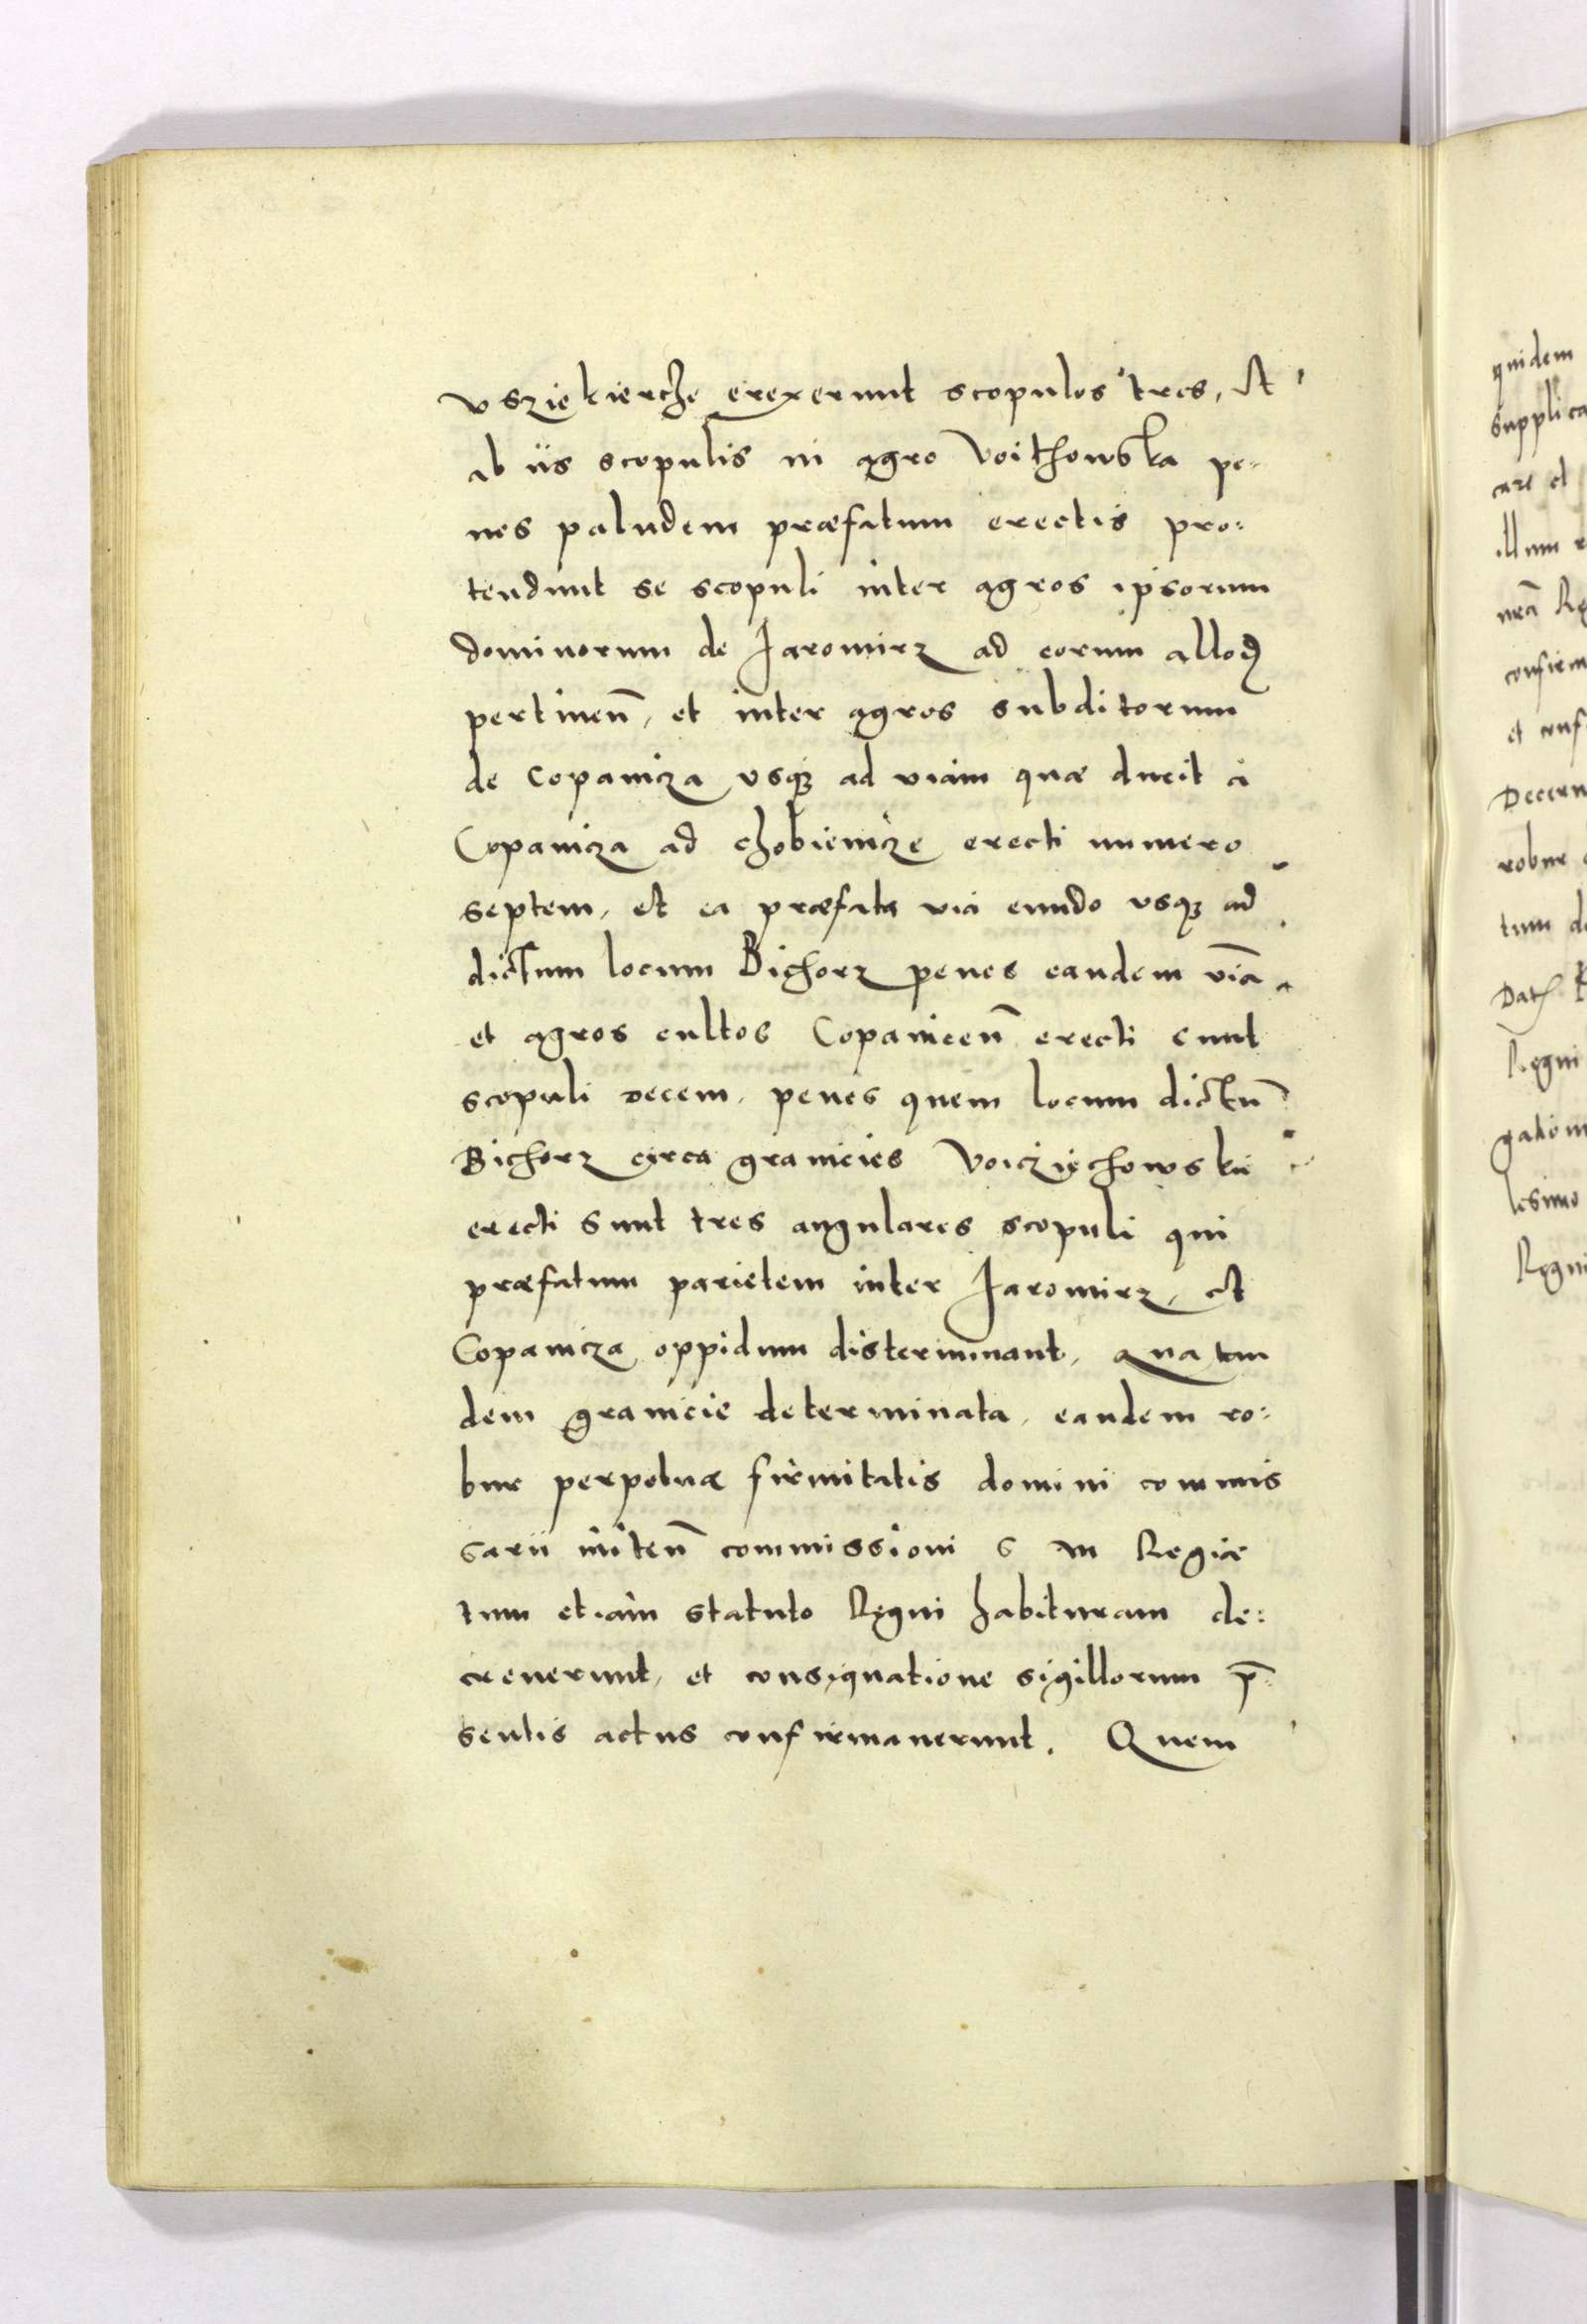 vsziekierche erexerunt scopulos tres, et
ab iis scopulis in agro Voithowska pe-
nes paludem præfatum erectis pro:
tendunt se scopuli inter agros ipsorum
dominorum de Jaromirz ad eorum allod
pertinen̄, et inter agros subditorum
de Copanicza vsqꝫ ad viam quæ ducit a
Copanicza ad chobienicze erecti numero
septem, et ea præfata via eundo vsqꝫ ad
dictum locum Bichorz penes eandem viā
et agros cultos Copanicen̄ erecti sunt
scopuli decem, penes quem locum dictū
Bichorz circa granicies Voicziechowskii
erecti sunt tres angulares scopuli qui
præfatum parietem inter Jaromirz, et
Copanicza oppidum disterminant, qua tan
dem granicie determinata, eandem ro:
bur perpetuæ firmitatis domini commis
sarii initen̄ commissioni S M Regiæ
tum etiam statuto Regni habituram de:
creuerunt, et consignatione sigillorum p̄
sentis actus confirmauerunt. Quem
quidem
supplica
care et
illum
nrā
confirm
et conf
Decern
robur
tum
Dat
Regni
gation
lesimo
Regni